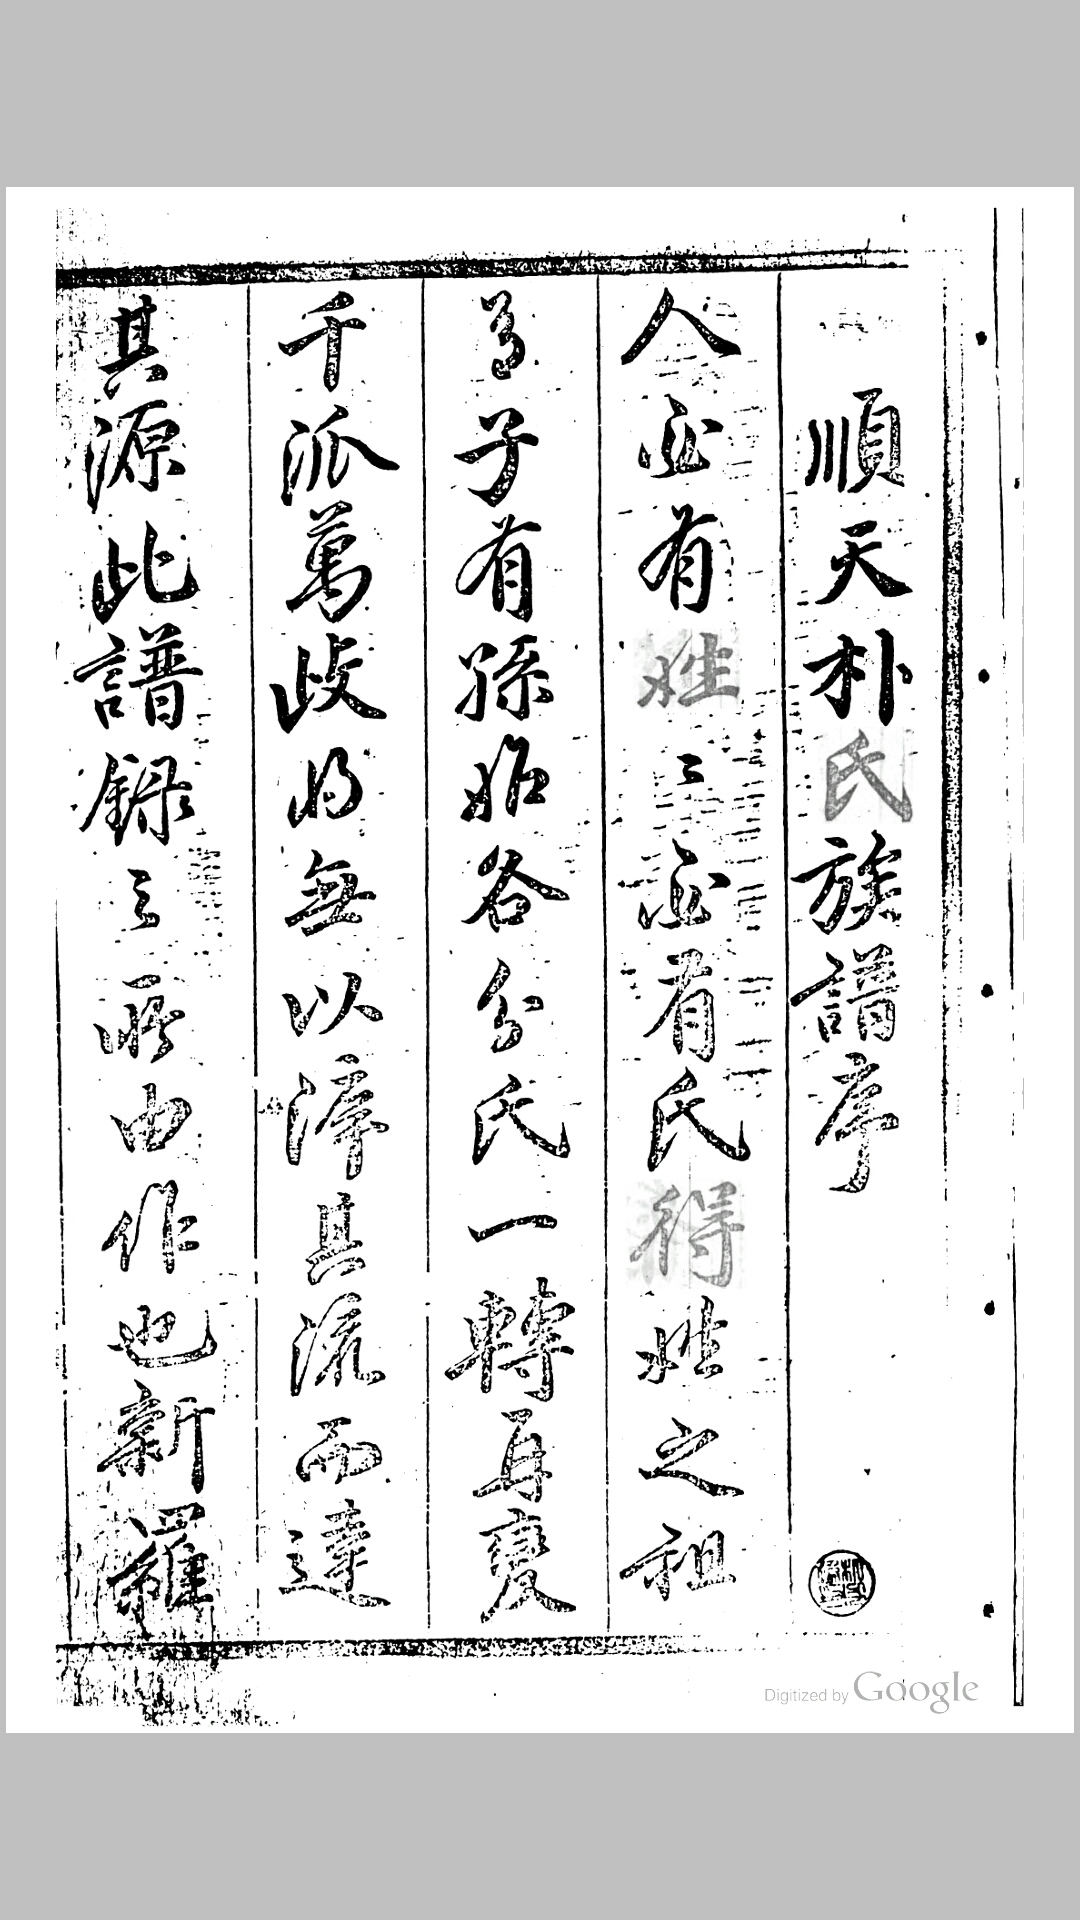 順天朴氏族譜序
人必有姓〻必有氏得姓之祖
有子有孫始各分氏一轉再變
千派萬歧將無以溯其流而達
其源此譜錄之所由作也新羅
Digitized by Google